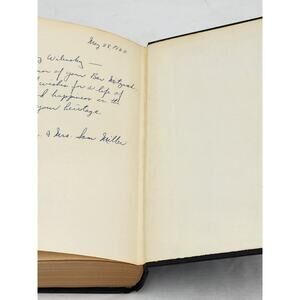 May 28, 1960
Wilensky —
of your Bar Mitzvah
wishes for a life of
happiness in the
your heritage.
& Mrs. Sam Miller